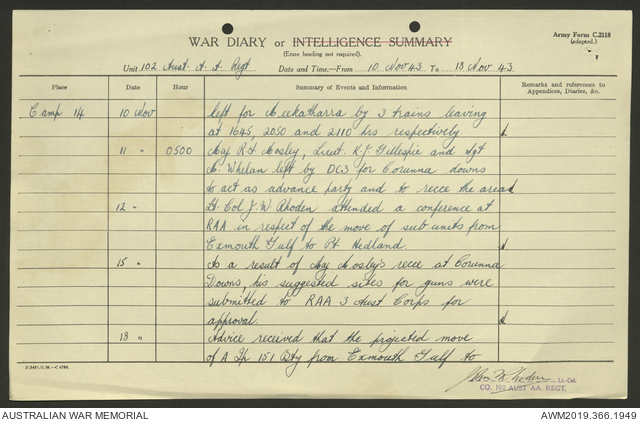 Army Form C.2118
(adapted.)
WAR DIARY or INTELLIGENCE SUMMARY
(Erase heading not required).
Unit 102 Aust. A A Regt Date and Time.—From 10 Nov 43 To 18 Nov 43
Place Date Hour Summary of Events and Information Remarks and references to Appendices, Diaries, &c.
Camp 14 10 Nov left for Meekatharra by 3 trains leaving
at 1645, 2050 and 2110 hrs respectively.
11 " 0500 Maj R H Mosley, Lieut. K.J. Gillespie and Sgt
Whelan left by DC3 for Corunna downs
to act as advance party and to recce the area
12 " Lt. Col J.W. Rhoden attended a conference at
RAA in respect of the move of sub units from
Exmouth Gulf to Pt. Hedland.
15 " As a result of Maj Mosley's recce at Corunna
Downs, his suggested sites for guns were
submitted to RAA 3 Aust Corps for
approval.
18 " Advice received that the projected move
of A Tp 151 Bty from Exmouth Gulf to
John W Rhoden Lt-Col.
CO. 102 AUST AA. REGT.
AUSTRALIAN WAR MEMORIAL
AWM2019.366.1949